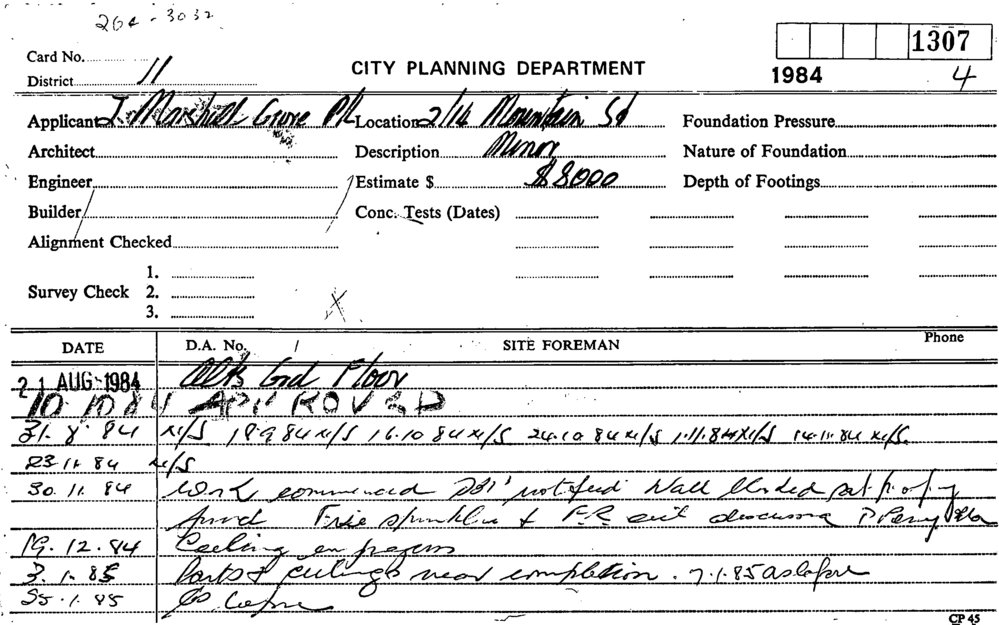 264 - 3032
1307
Card No.
CITY PLANNING DEPARTMENT
1984 4
District 11
Applicant J. Marshall Grove P/L Location 2/14 Mountain St Foundation Pressure
Architect Description Minor Nature of Foundation
Engineer Estimate $ $8000 Depth of Footings
Builder Conc. Tests (Dates)
Alignment Checked
1.
Survey Check 2.
3.
X
DATE D.A. No. SITE FOREMAN Phone
21 AUG 1984 Alts Gnd Floor
10 10 84 APPROVED
31. 8. 84 N/S 18.9 84 N/S 16.10 84 N/S 24.10 84 N/S 1.11.84 N/S 14.11.84 N/S
23.11.84 N/S
30.11.84 Work commenced notified Wall
Fire sprinkler &
19.12.84 Ceiling in progress
3.1.85 Parts & ceilings near completion. 7.1.85 as before
25.1.85 as before
CP 45